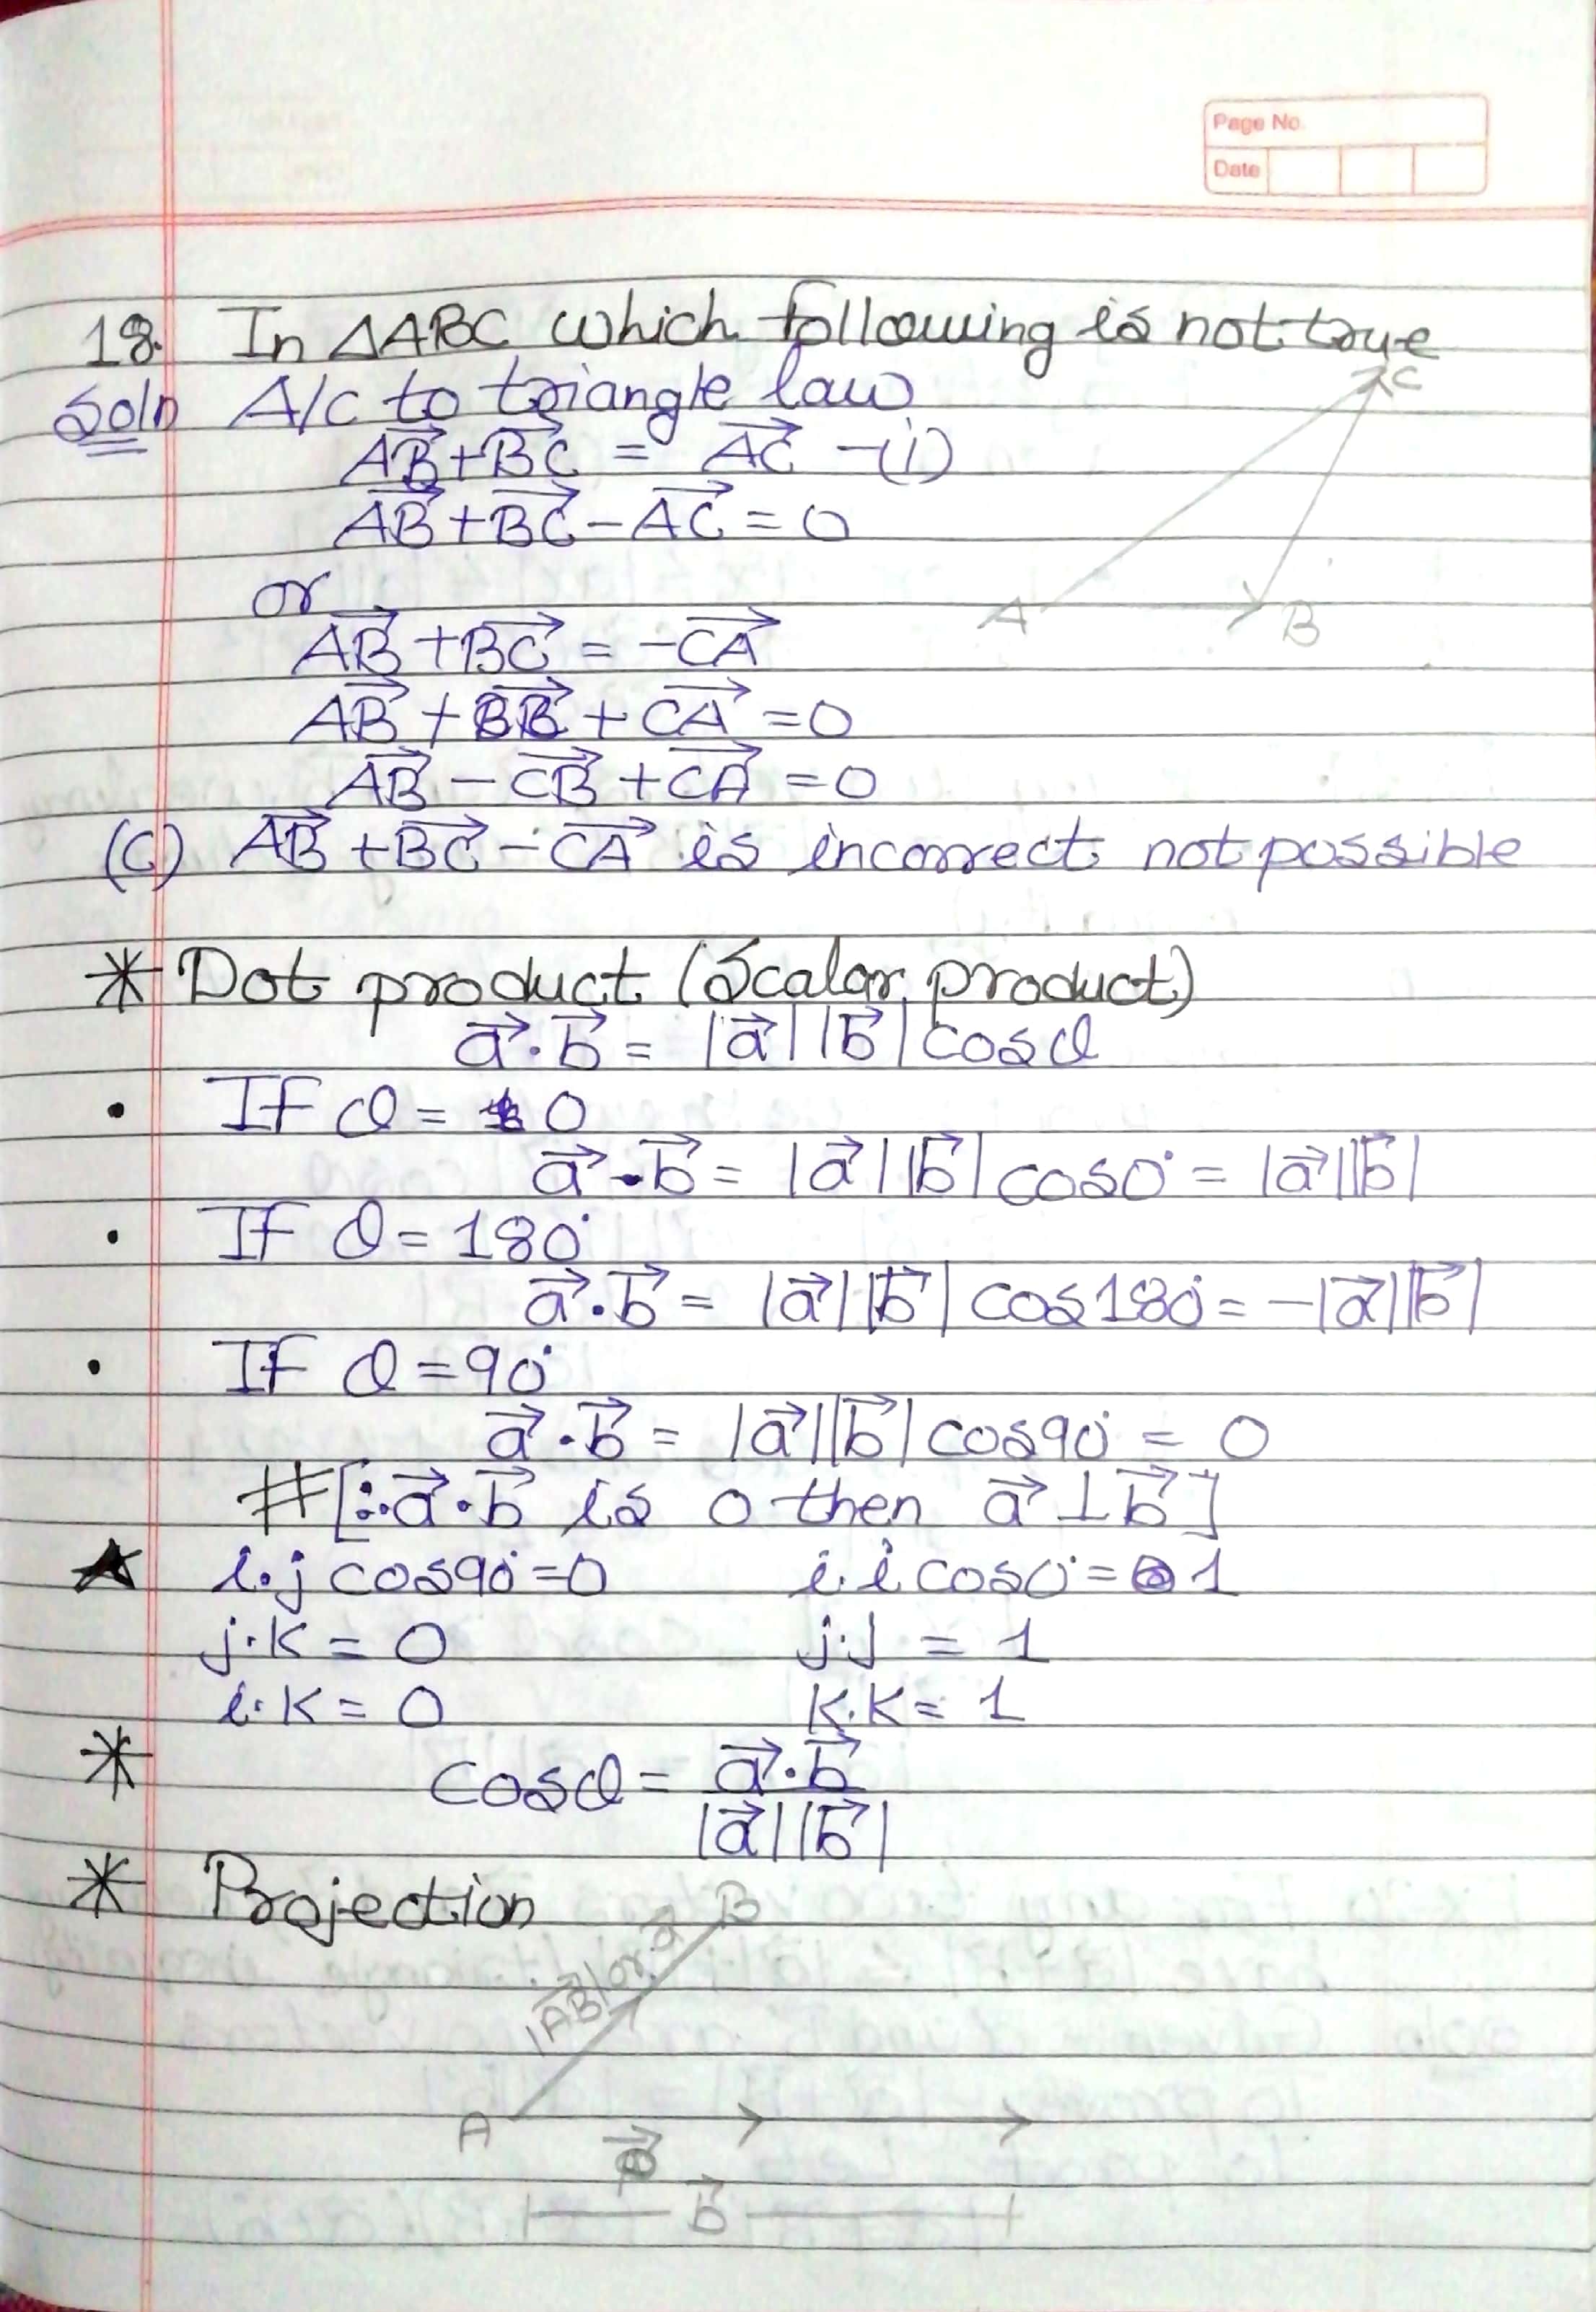 Page No.
Date
18. In △ABC which following is not true
Soln A/c to triangle law
C
A B
AB⃗ + BC⃗ = AC⃗ -(i)
AB⃗ + BC⃗ - AC⃗ = 0
or
AB⃗ + BC⃗ = -CA⃗
AB⃗ + BC⃗ + CA⃗ = 0
AB⃗ - CB⃗ + CA⃗ = 0
(C) AB⃗ + BC⃗ - CA⃗ is incorrect not possible
* Dot product (Scalar product)
a⃗ · b⃗ = |a⃗| |b⃗| cosθ
• If θ = 0
a⃗ · b⃗ = |a⃗| |b⃗| cos0° = |a⃗||b⃗|
• If θ = 180°
a⃗ · b⃗ = |a⃗| |b⃗| cos180° = -|a⃗||b⃗|
• If θ = 90°
a⃗ · b⃗ = |a⃗||b⃗| cos90° = 0
# [∴ a⃗ · b⃗ is 0 then a⃗ ⊥ b⃗]
★ i·j cos90° = 0 i·i cos0° = 1
j·k = 0 j·j = 1
i·k = 0 k·k = 1
* cosθ = a⃗ · b⃗
|a⃗||b⃗|
* Projection
B
|AB⃗| or a⃗
A
b⃗